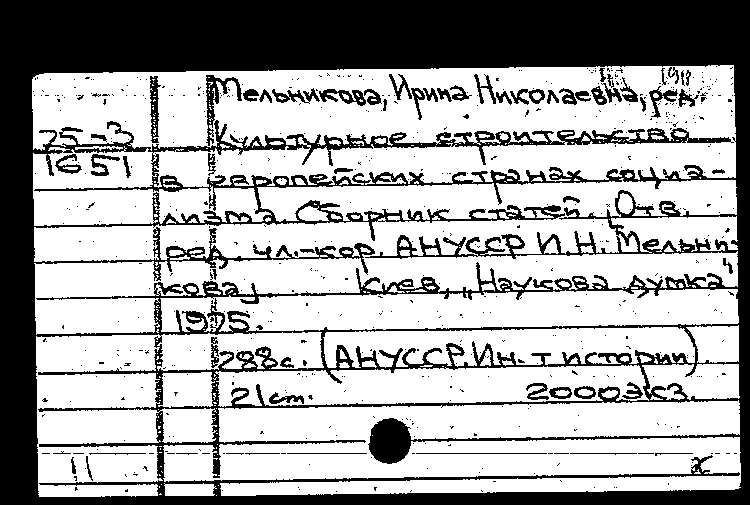 Мельникова, Ирина Николаевна, ред.
25-3
1651
Культурное строительство
в европейских странах социа-
лизма. Сборник статей. [Отв.
ред. чл.-кор. АНУССР И.Н. Мельни-
кова]. Киев, „Наукова думка",
1975.
288с. (АНУССР. Ин-т истории).
21 ст. 2000экз.
11